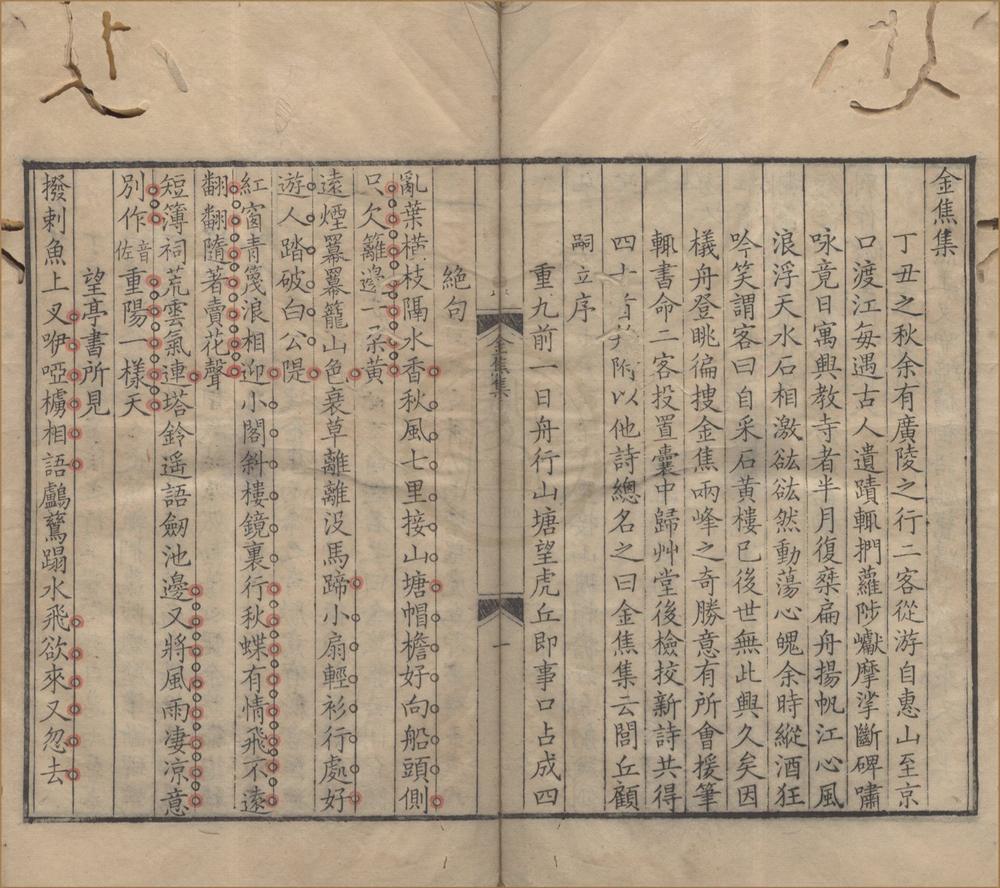 金焦集
丁丑之秋余有廣陵之行二客從游自惠山至京
口渡江每遇古人遺蹟輒捫蘿陟巘摩挲斷碑嘯
咏竟日寓興教寺者半月復椉扁舟揚帆江心風
浪浮天水石相激谹谹然動蕩心魄余時縱酒狂
吟笑謂客曰自采石黃樓已後世無此興久矣因
檥舟登眺徧搜金焦兩峰之奇勝意有所會援筆
輒書命二客投置囊中歸艸堂後檢挍新詩共得
四十首并附以他詩總名之曰金焦集云閶丘顧
嗣立序
重九前一日舟行山塘望虎丘即事口占成四
絶句
亂葉橫枝隔水香秋風七里接山塘帽檐好向船頭側
只欠籬邊一朵黃
遠煙羃羃籠山色衰草離離没馬蹄小扇輕衫行處好
遊人踏破白公隄
紅窗青篾浪相迎小閣斜樓鏡裏行秋蝶有情飛不遠
翻翻隨著賣花聲
短簿祠荒雲氣連塔鈴遥語劒池邊又將風雨凄凉意
別作音佐重陽一樣天
望亭書所見
撥剌魚上叉咿啞櫓相語鸕鶿蹋水飛欲來又忽去
金焦集
一